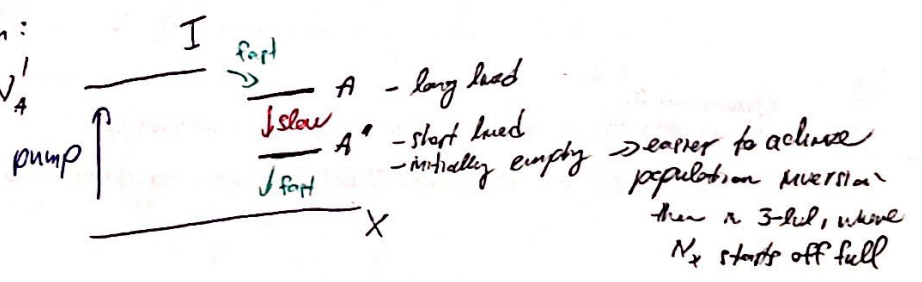 I
fast
A - long lived
↓ slow
pump
A' - short lived
- initially empty → easier to achieve
↓ fast
population inversion
than in 3-lvl, where
X
Nx starts off full